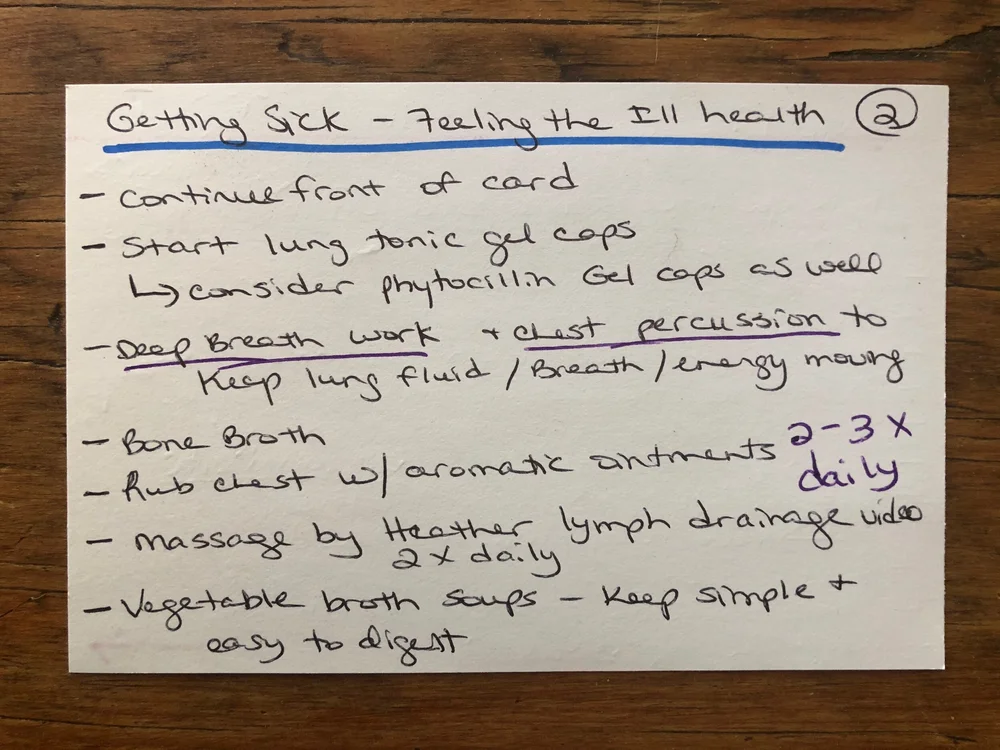 Getting Sick - Feeling the Ill health ②
- Continue front of card
- Start lung tonic gel caps
↳ consider phytocillin Gel caps as well
- Deep Breath work + chest percussion to
Keep lung fluid / Breath / energy moving
- Bone Broth
- Rub chest w/ aromatic ointments 2-3 x
daily
- massage by Heather lymph drainage video
2 x daily
- Vegetable broth soups - Keep simple +
easy to digest